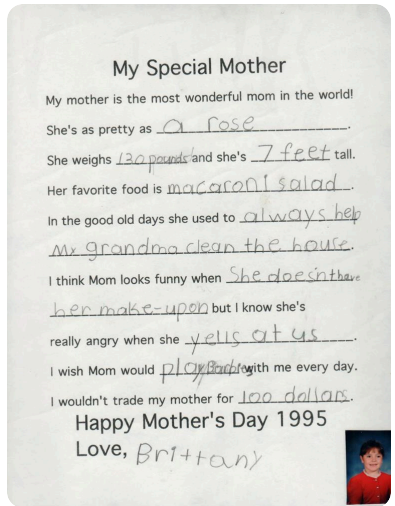 My Special Mother
My mother is the most wonderful mom in the world!
She's as pretty as a rose.
She weighs 130 pounds and she's 7 feet tall.
Her favorite food is macaroni salad.
In the good old days she used to always help
my grandma clean the house.
I think Mom looks funny when She doesn't have
her make-upon but I know she's
really angry when she yells at us.
I wish Mom would play Barbies with me every day.
I wouldn't trade my mother for 100 dollars.
Happy Mother's Day 1995
Love, Brittany